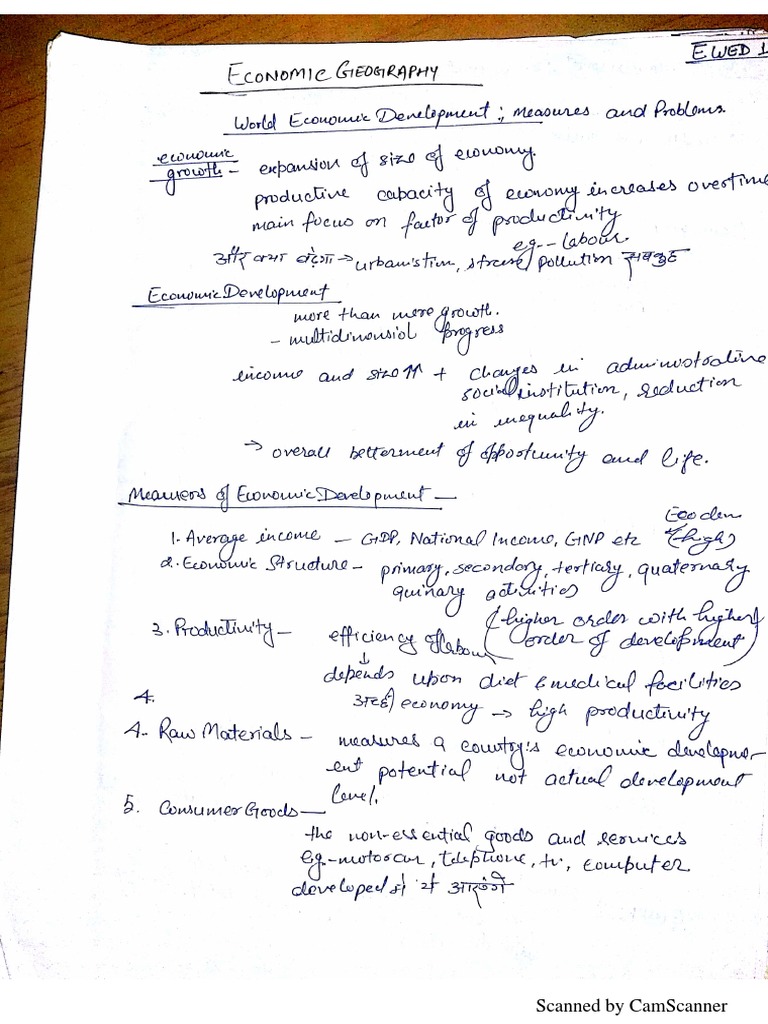 E.WED 1
ECONOMIC GEOGRAPHY
World Economic Development; Measures and Problems.
economic growth - expansion of size of economy.
productive capacity of economy increases overtime
main focus on factor of productivity
eg-- labour.
और क्या बढ़ेगा → urbanistion, stress, pollution सबकुछ
Economic Development
more than mere growth.
- multidimensiol progress
income and size ↑↑ + changes in administrative
social institution, reduction
in inequality.
→ overall betterment of opportunity and life.
Measuers of Economic Development —
1. Average income - GDP, National Income, GNP etc (high)
2. Economic Structure - primary, secondary, tertiary, quaternary
quinary activities
(higher order with higher
order of development)
3. Productivity - efficiency of labour
↓
depends upon diet & medical facilities
4. अच्छी economy → high productivity
4. Raw Materials - measures a country's economic developm-
ent potential not actual development
level.
5. Consumer Goods —
the non-essential goods and services
eg.- motorcar, telephone, tv, computer
developed में ये आएंगे
Scanned by CamScanner